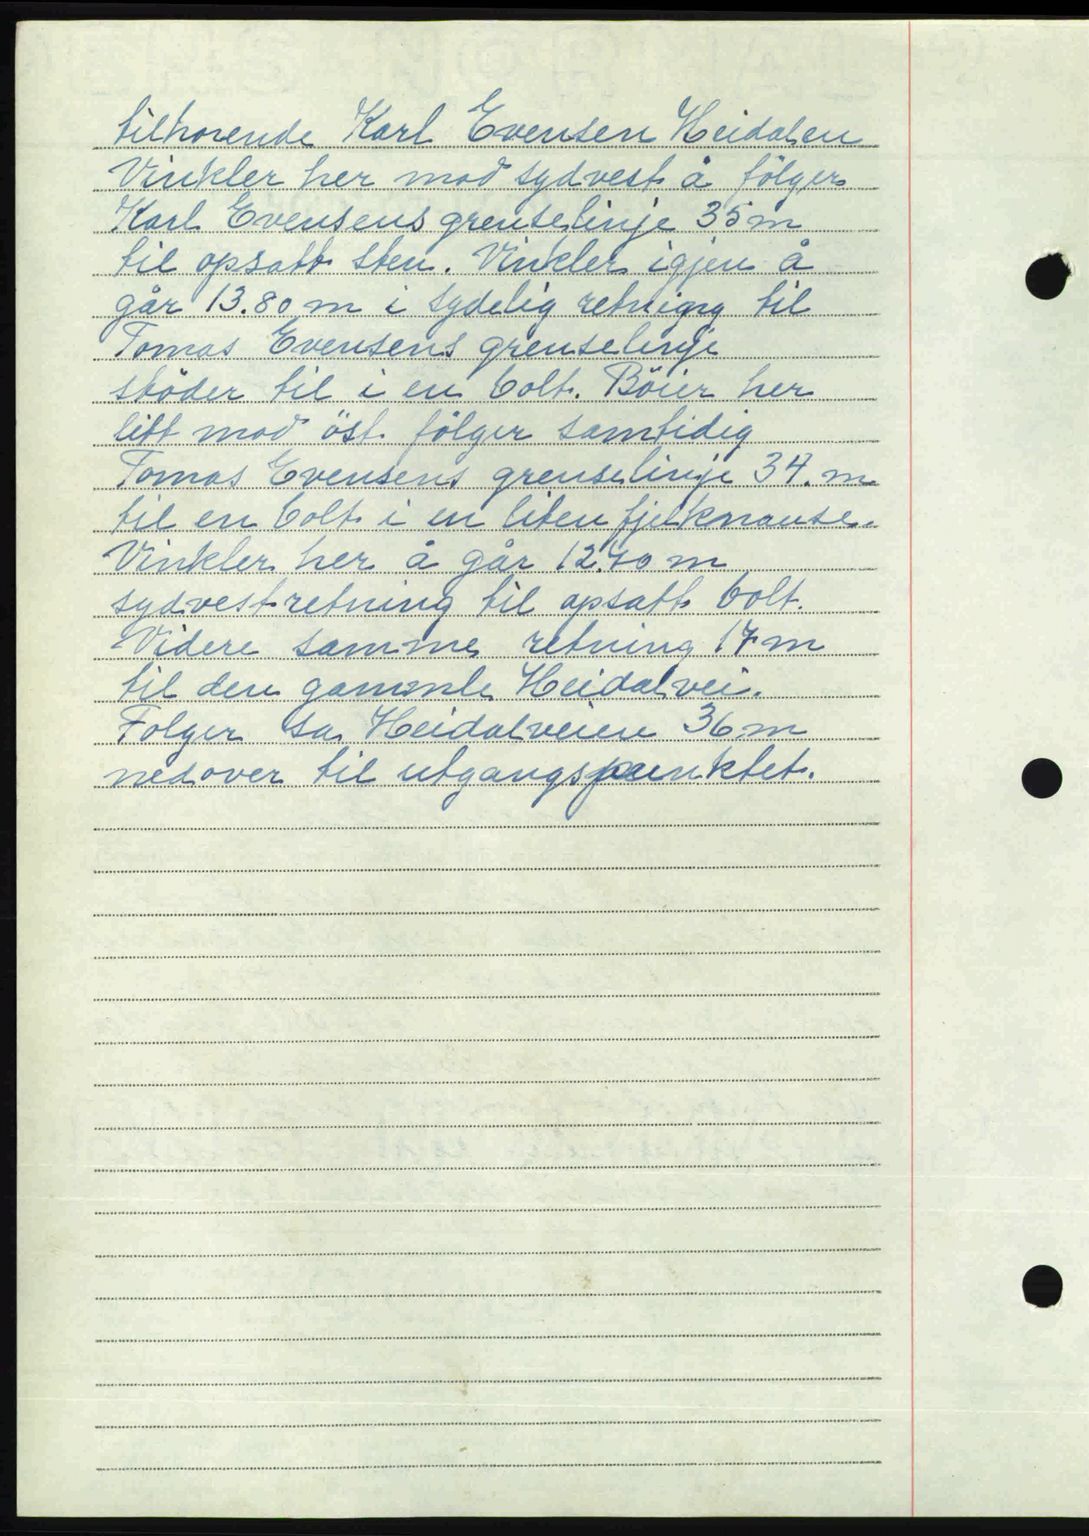 tilhorende Karl Evensen Heidalen
Vinkler her mod sydvest å fölger
Karl Evensens grenselinje 35 m
til opsatt sten. Vinkler igjen å
går 13.80 m i sydelig retnigng til
Tomas Evensens grenselinje
stöder til i en bolt. Böier her
litt mod öst fölger samtidig
Tomas Evensens grenselinje 34. m
til en bolt i en liten fjelknause.
Vinkler her å går 12.40 m
sydvestretning til opsatt bolt.
Videre samme retning 17 m
til den gammle Heidalvei.
Folger sa Heidalveien 36 m
nedover til utgangspunktet.